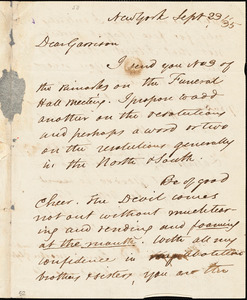 New York Sept 23/35
Dear Garrison
I send you No 3 of
the remarks on the Funeral
Hall meeting. I propose to add
another on the resolutions
and perhaps a word or two
on the resolutions generally
in the North & South.
Be of good
Cheer. The Devil comes
not out without much tear
ing and rending and foaming
at the mouth. With all my
confidence in my abolition
brothers & sisters, you are the